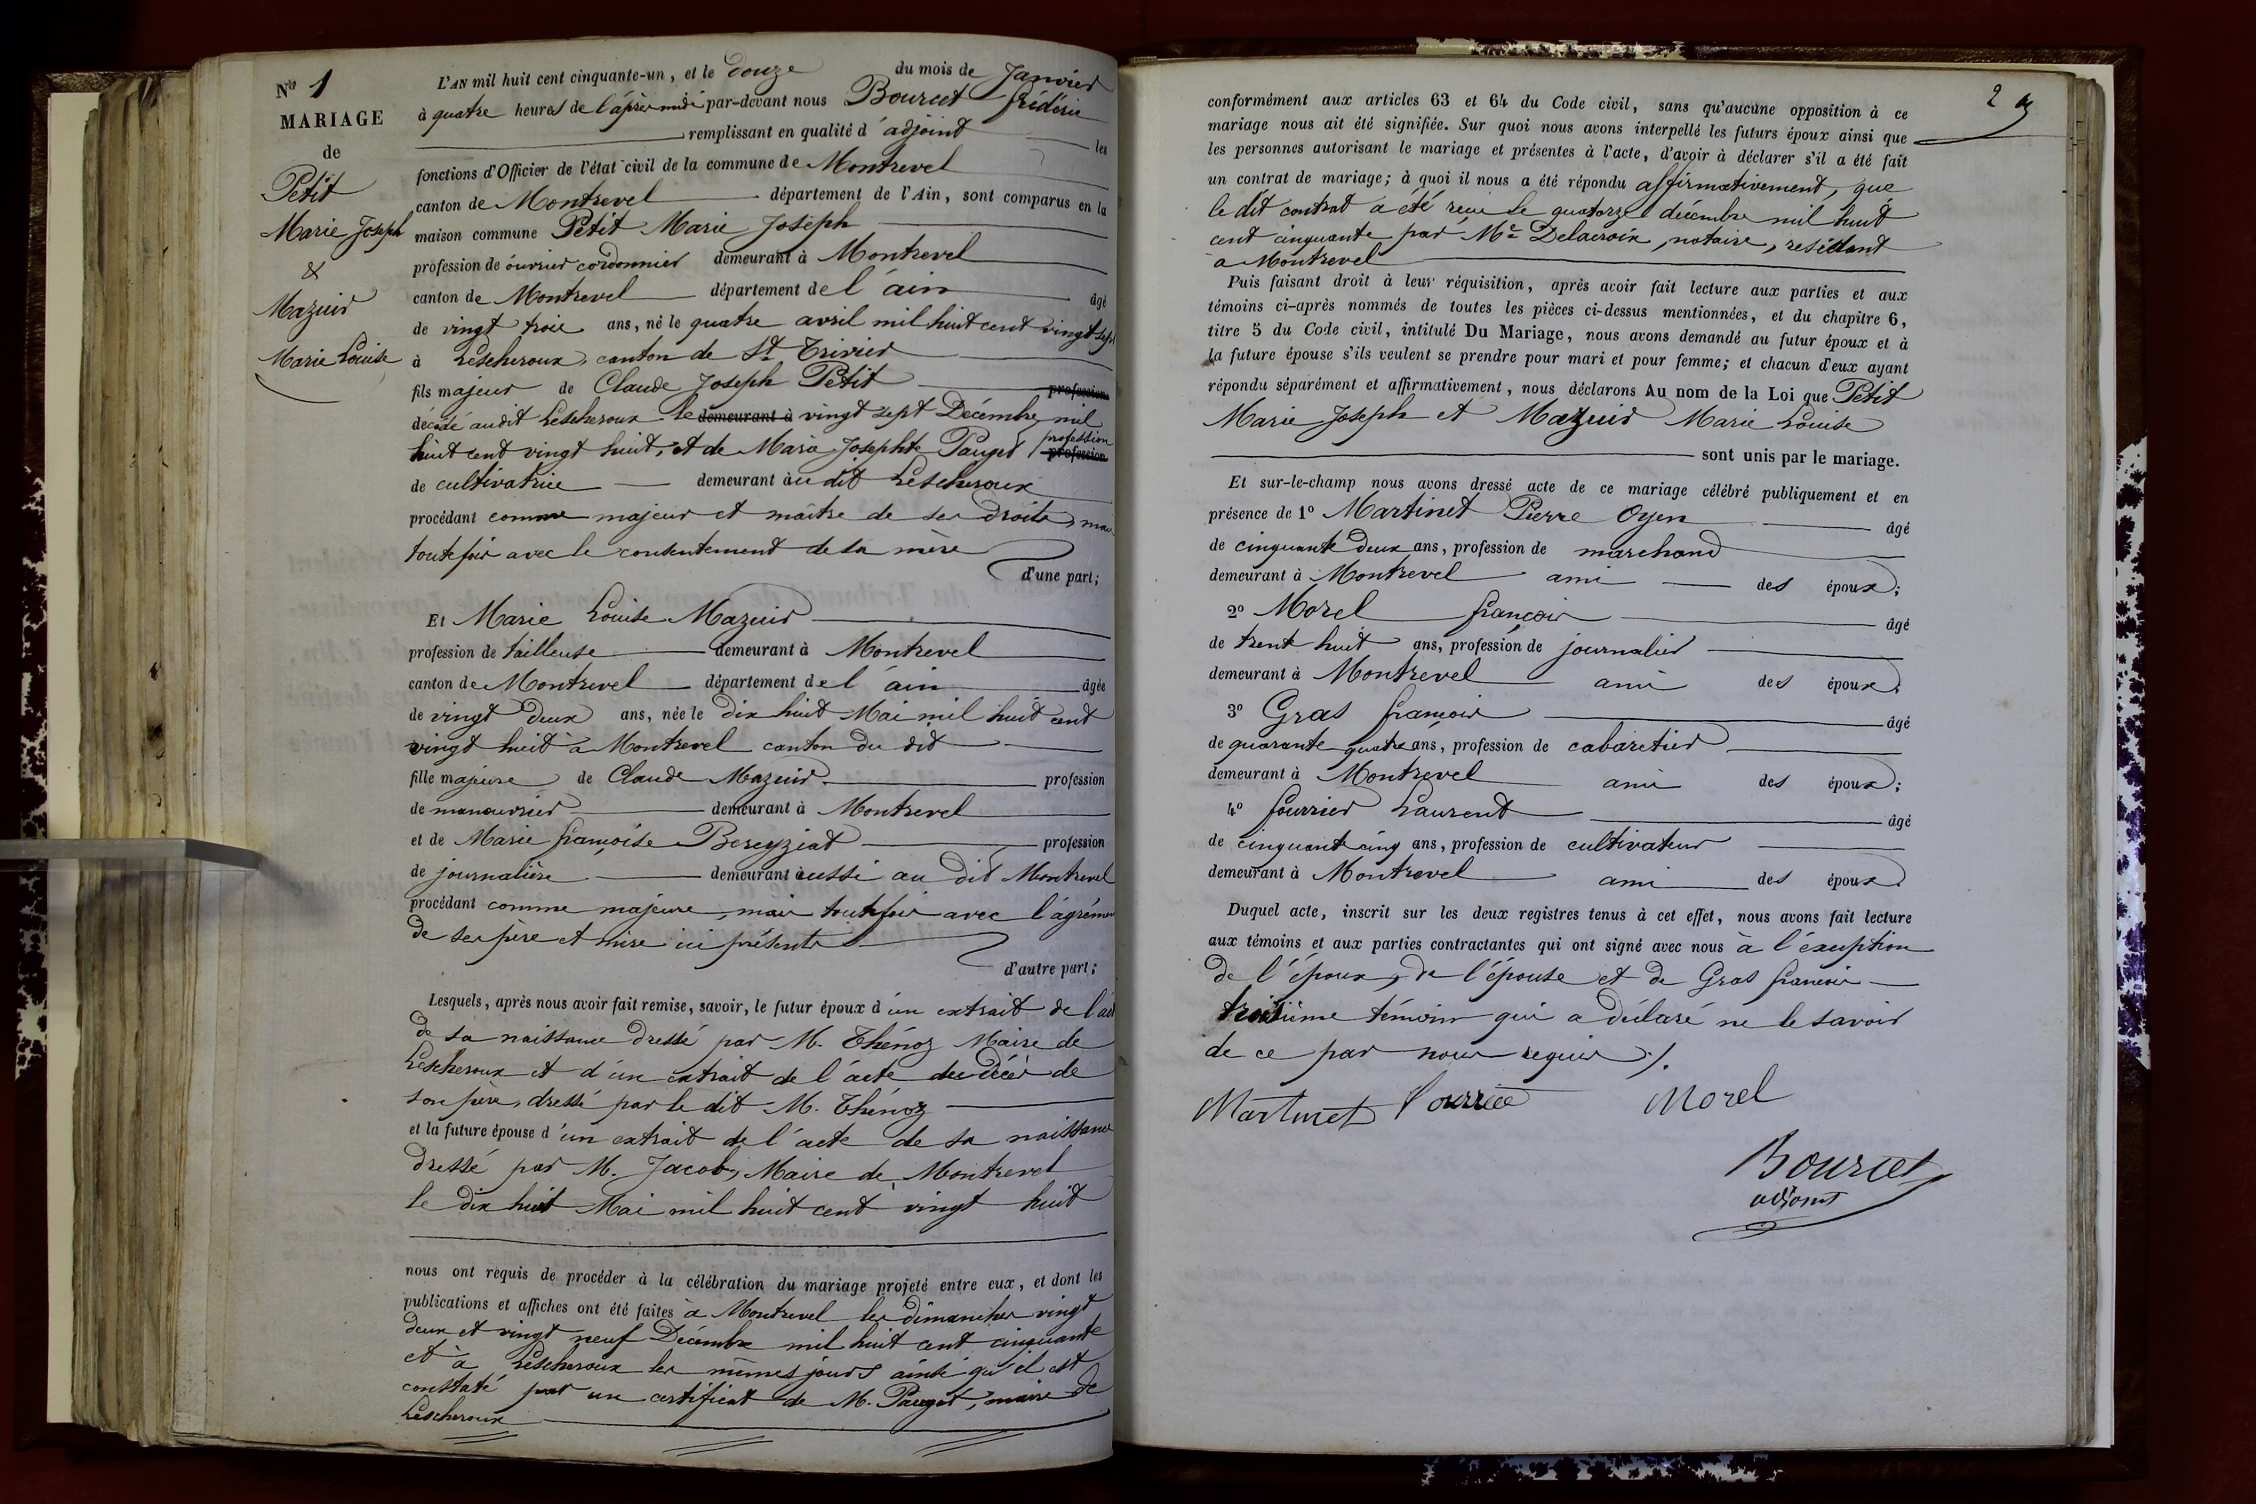 N° 1
MARIAGE
de
Petit
Marie Joseph
&
Mazuir
Marie Louise
L'AN mil huit cent cinquante-un, et le douze du mois de Janvier
à quatre heures de l'après midi par-devant nous Bourcet frédéric
remplissant en qualité d'adjoint les
fonctions d'Officier de l'état civil de la commune de Montrevel
canton de Montrevel département de l'Ain, sont comparus en la
maison commune Petit Marie Joseph
profession de ouvrier cordonnier demeurant à Montrevel
canton de Montrevel département de l'ain âgé
de vingt trois ans, né le quatre avril mil huit cent vingt sept
à Lescheroux, canton de St Trivier
fils majeur de Claude Joseph Petit profession
décédé audit Lescheroux le demeurant à vingt sept Décembre mil
huit cent vingt huit, et de Marie Josephte Pauget profession profession
de cultivatrice demeurant audit Lescheroux
procédant comme majeur et maître de ses droits, mais
toutefois avec le consentement de sa mère
d'une part;
Et Marie Louise Mazuir
profession de tailleuse demeurant à Montrevel
canton de Montrevel département de l'ain âgée
de vingt deux ans, née le dix huit Mai mil huit cent
vingt huit à Montrevel canton du dit
fille majeure de Claude Mazuir profession
de manouvrier demeurant à Montrevel
et de Marie françoise Bereyziat profession
de journalière demeurant aussi au dit Montrevel
procédant comme majeure, mais toutefois avec l'agrément
de ses père et mère ici présents
d'autre part;
Lesquels, après nous avoir fait remise, savoir, le futur époux d'un extrait de l'acte
de sa naissance dressé par M. Thénoz Maire de
Lescheroux et d'un extrait de l'acte du décès de
son père, dressé par le dit M. Thénoz
et la future épouse d'un extrait de l'acte de sa naissance
dressé par M. Jacob, Maire de Montrevel
le dix huit Mai mil huit cent vingt huit
nous ont requis de procéder à la célébration du mariage projeté entre eux, et dont les
publications et affiches ont été faites à Montrevel les dimanches vingt
deux et vingt neuf Décembre mil huit cent cinquante
et à Lescheroux les mêmes jours ainsi qu'il est
constaté par un certificat de M. Pauget, maire de
Lescheroux
2
conformément aux articles 63 et 64 du Code civil, sans qu'aucune opposition à ce
mariage nous ait été signifiée. Sur quoi nous avons interpellé les futurs époux ainsi que
les personnes autorisant le mariage et présentes à l'acte, d'avoir à déclarer s'il a été fait
un contrat de mariage; à quoi il nous a été répondu affirmativement, que
le dit contrat a été reçu le quatorze décembre mil huit
cent cinquante par Me Delacroix, notaire, résidant
à Montrevel
Puis faisant droit à leur réquisition, après avoir fait lecture aux parties et aux
témoins ci-après nommés de toutes les pièces ci-dessus mentionnées, et du chapitre 6,
titre 5 du Code civil, intitulé Du Mariage, nous avons demandé au futur époux et à
la future épouse s'ils veulent se prendre pour mari et pour femme; et chacun d'eux ayant
répondu séparément et affirmativement, nous déclarons Au nom de la Loi que Petit
Marie Joseph et Mazuir Marie Louise
sont unis par le mariage.
Et sur-le-champ nous avons dressé acte de ce mariage célébré publiquement et en
présence de 1° Martinet Pierre Oyen âgé
de cinquante deux ans, profession de marchand
demeurant à Montrevel ami des époux;
2° Morel françois âgé
de trente huit ans, profession de journalier
demeurant à Montrevel ami des époux;
3° Gras françois âgé
de quarante quatre ans, profession de cabaretier
demeurant à Montrevel ami des époux;
4° fourrier Laurent âgé
de cinquante cinq ans, profession de cultivateur
demeurant à Montrevel ami des époux
Duquel acte, inscrit sur les deux registres tenus à cet effet, nous avons fait lecture
aux témoins et aux parties contractantes qui ont signé avec nous à l'éxeption
de l'époux, de l'épouse et de Gras francois
troisième témoin qui a déclaré ne le savoir
de ce par nous requis /.
Martinet fourrier Morel
Bourcet
adjoint